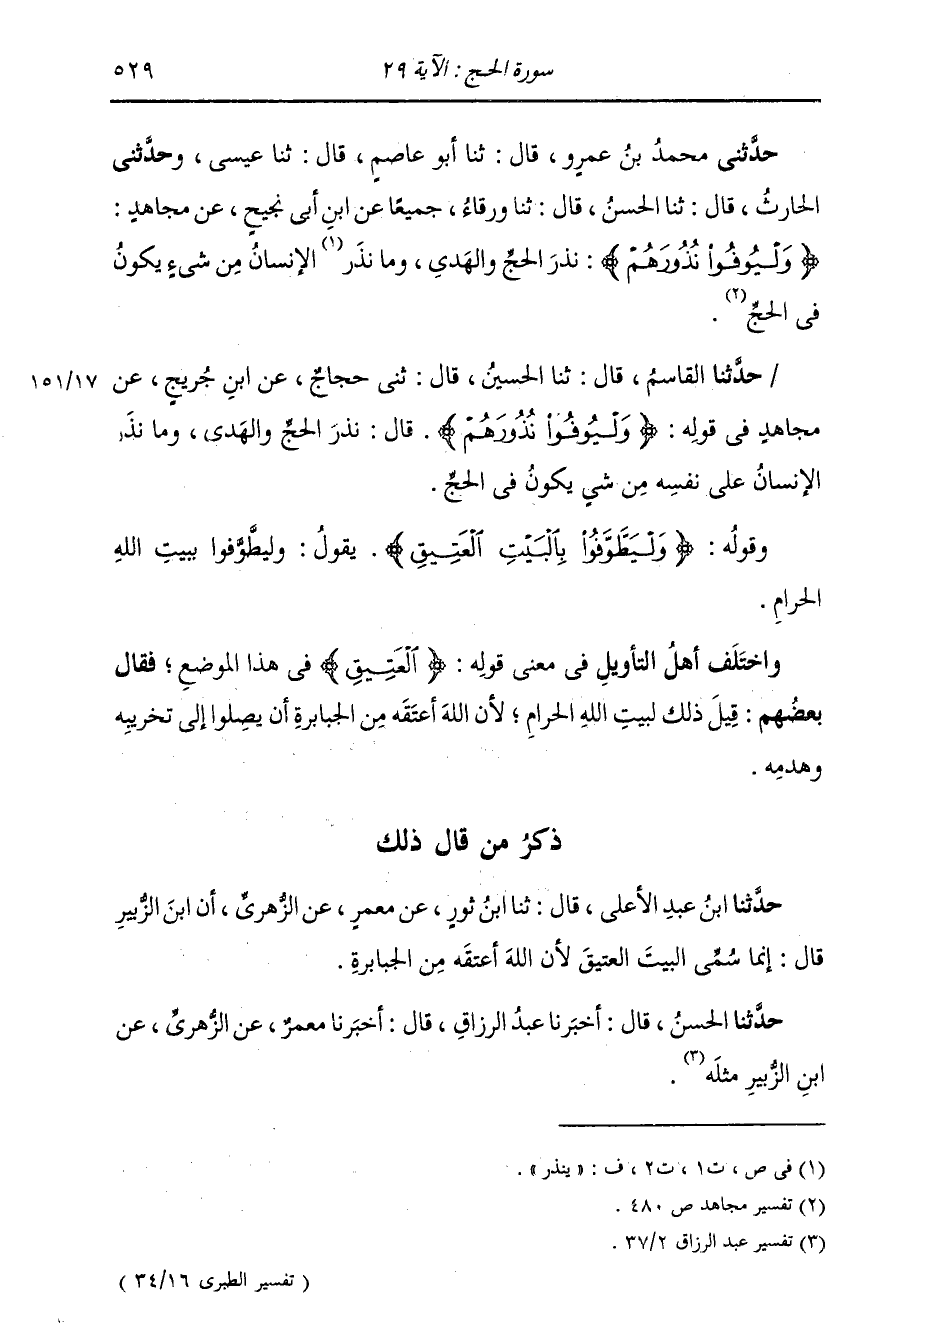 سورة الحج : الآية ٢٩ ٥٢٩
حدَّثنى محمدُ بنُ عمرو ، قال : ثنا أبو عاصمٍ ، قال : ثنا عيسى ، وحدَّثنى
الحارثُ ، قال : ثنا الحسنُ ، قال : ثنا ورقاءُ ، جميعًا عن ابنِ أبى نجيحٍ ، عن مجاهدٍ :
﴿ وَلْيُوفُوا۟ نُذُورَهُمْ ﴾ : نذرَ الحجِّ والهَديِ ، وما نذَر(١) الإنسانُ مِن شىءٍ يكونُ
فى الحجِّ(٢) .
/ حدَّثنا القاسمُ ، قال : ثنا الحسينُ ، قال : ثنى حجاجٌ ، عن ابنِ جُريجٍ ، عن ١٥١/١٧
مجاهدٍ فى قولِه : ﴿ وَلْيُوفُوا۟ نُذُورَهُمْ ﴾ . قال : نذرَ الحجِّ والهَدى ، وما نذَر
الإنسانُ على نفسِه مِن شيءٍ يكونُ فى الحجِّ .
وقولُه : ﴿ وَلْيَطَّوَّفُوا۟ بِٱلْبَيْتِ ٱلْعَتِيقِ ﴾ . يقولُ : وليطَّوَّفوا ببيتِ اللهِ
الحرامِ .
واختَلَف أهلُ التأويلِ فى معنى قولِه : ﴿ ٱلْعَتِيقِ ﴾ فى هذا الموضعِ ؛ فقال
بعضُهم : قِيلَ ذلك لبيتِ اللهِ الحرامِ ؛ لأن اللهَ أعتَقَه مِن الجبابرةِ أن يصِلوا إلى تخريبِه
وهدمِه .
ذكرُ من قال ذلك
حدَّثنا ابنُ عبدِ الأعلى ، قال : ثنا ابنُ ثورٍ ، عن معمرٍ ، عن الزُّهرىِّ ، أن ابنَ الزُّبيرِ
قال : إنما سُمِّى البيتَ العتيقَ لأن اللهَ أعتقَه مِن الجبابرةِ .
حدَّثنا الحسنُ ، قال : أخبَرنا عبدُ الرزاقِ ، قال : أخبَرنا معمرٌ ، عن الزُّهرىِّ ، عن
ابنِ الزُّبيرِ مثلَه(٣) .
(١) فى ص ، ت١ ، ت٢ ، ف : « ينذر » .
(٢) تفسير مجاهد ص ٤٨٠ .
(٣) تفسير عبد الرزاق ٣٧/٢ .
( تفسير الطبرى ٣٤/١٦ )